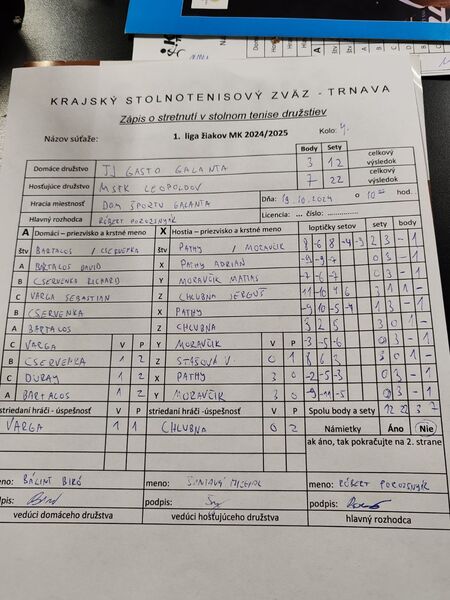 KRAJSKÝ STOLNOTENISOVÝ ZVÄZ - TRNAVA
Zápis o stretnutí v stolnom tenise družstiev
Názov súťaže: 1. liga žiakov MK 2024/2025 Kolo: 4.
Body Sety
Domáce družstvo TJ GASTO GALANTA 3 12 celkový výsledok
Hosťujúce družstvo MSTK LEOPOLDOV 7 22 celkový výsledok
Hracia miestnosť DOM ŠPORTU GALANTA Dňa: 19.10.2024 o 10 00 hod.
Hlavný rozhodca RÓBERT POROZSNYÁK Licencia: ... číslo:
A Domáci - priezvisko a krstné meno X Hostia - priezvisko a krstné meno loptičky setov sety body
štv BARTALOS / CSERVENKA štv PATHY / MORAVČÍK 8 -6 8 -4 -9 2 3 - 1
A BARTALOS DAVID X PATHY ADRIÁN -9 -9 -7 0 3 - 1
B CSERVENKA RICHARD Y MORAVČÍK MATIAS -7 -6 -7 0 3 - 1
C VARGA SEBASTIAN Z CHLUBNA JERGUŠ 3 1 1 -
B CSERVENKA X PATHY -9 10 -5 -4 1 3 - 1
A BARTALOS Z CHLUBNA 3 2 5 3 0 1 -
C VARGA V P Y MORAVČÍK V P -3 -5 -6 0 3 - 1
B CSERVENKA 1 2 Z STAŠOVÁ V. 0 1 8 6 3 3 0 1 -
C DURAY 1 2 X PATHY 3 0 -2 -5 -3 0 3 - 1
A BARTALOS 1 2 Y MORAVČÍK 3 0 -9 -11 -5 0 3 - 1
striedaní hráči - úspešnosť V P striedaní hráči - úspešnosť V P Spolu body a sety 12 22 3 7
VARGA 1 1 CHLUBNA 0 2 Námietky Áno Nie
ak áno, tak pokračujte na 2. strane
meno: BÁLINT BIRÓ meno: meno: RÓBERT POROZSNYÁK
podpis: podpis: podpis:
vedúci domáceho družstva vedúci hosťujúceho družstva hlavný rozhodca